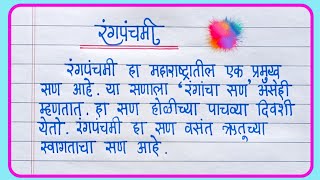 रंगपंचमी
रंगपंचमी हा महाराष्ट्रातील एक प्रमुख
सण आहे. या सणाला 'रंगांचा सण' असेही
म्हणतात. हा सण होळीच्या पाचव्या दिवशी
येतो. रंगपंचमी हा सण वसंत ऋतूच्या
स्वागताचा सण आहे.